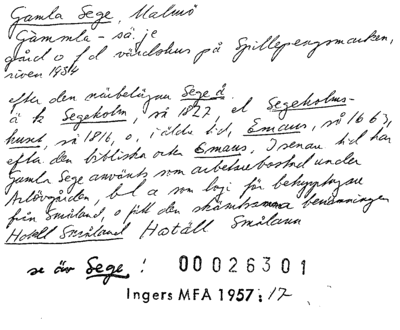 Gamla Sege, Malmö
Gammla - sä: je
gård o f d värdshus på Spillepengsmarken,
riven 1954
efter den närbelägna Sege å.
ä k Segeholm, så 1827 el Segeholms-
hund, så 1816, o, i äldre tid, Emaus, så 1663,
efter den bibliska orten Emaus, I senare tid har
Gamla Sege använts som arbetarebostad under
Arlövgården, bl a som logi för betupptagare
från Småland, o fått den skämtsamma benämningen
Hotell Småland Hotäll Smålann
se äv Sege!
00026301
Ingers MFA 1957:17